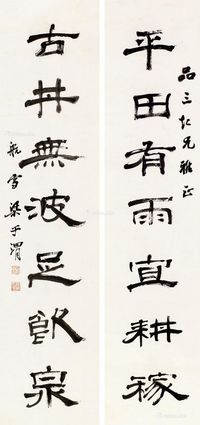 平田有雨宜耕稼
品三仁兄雅正
古井無波足飲泉
梁于渭